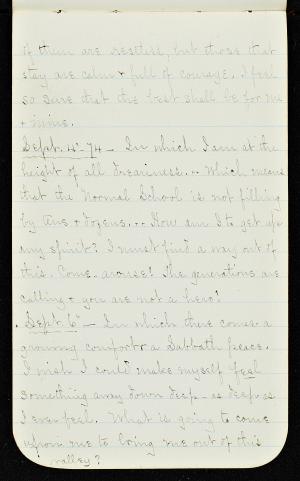 of them are restless, but those that
stay are calm & full of courage. I feel
so sure that the best shall be for me
& mine.
Sept. 4"-74 - In which I am at the
height of all dreariness... Which means
that the Normal School is not filling
by tens & dozens... How am I to get up
any spirit? I must find a way out of
this. Come, arouse! The generations are
calling & you are not a hero!
Sept. 6" - In which there comes a
growing comfort & a Sabbath peace.
I wish I could make myself feel
something away down deep - as deep as
I ever feel. What is going to come
upon me to bring me out of this
valley?